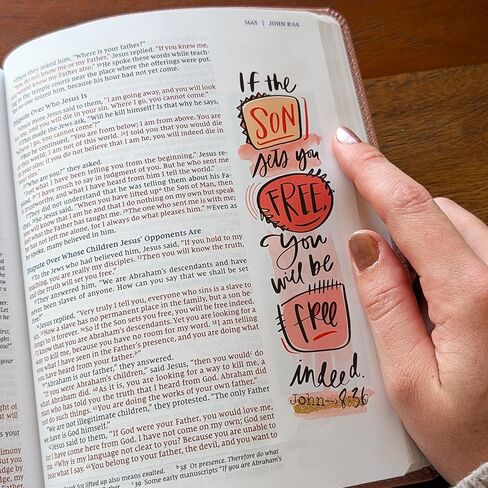 1443 | JOHN 8:44
Then they asked him, "Where is your father?"
"You do not know me or my Father," Jesus replied. "If you knew me,
you would know my Father also." 20 He spoke these words while teach-
ing in the temple courts near the place where the offerings were put.
Yet no one seized him, because his hour had not yet come.
Dispute Over Who Jesus Is
Once more Jesus said to them, "I am going away, and you will look
for me, and you will die in your sin. Where I go, you cannot come."
This made the Jews ask, "Will he kill himself? Is that why he says,
'Where I go, you cannot come'?"
But he continued, "You are from below; I am from above. You are
of this world; I am not of this world. 24 I told you that you would die
in your sins; if you do not believe that I am he, you will indeed die in
your sins."
"Who are you?" they asked.
"Just what I have been telling you from the beginning," Jesus re-
plied. "I have much to say in judgment of you. But he who sent me
is trustworthy, and what I have heard from him I tell the world."
They did not understand that he was telling them about his Fa-
ther. 28 So Jesus said, "When you have lifted up the Son of Man, then
you will know that I am he and that I do nothing on my own but speak
just what the Father has taught me. 29 The one who sent me is with me;
he has not left me alone, for I always do what pleases him." 30 Even as
he spoke, many believed in him.
Dispute Over Whose Children Jesus' Opponents Are
To the Jews who had believed him, Jesus said, "If you hold to my
teaching, you are really my disciples. 32 Then you will know the truth,
and the truth will set you free."
They answered him, "We are Abraham's descendants and have
never been slaves of anyone. How can you say that we shall be set
free?"
Jesus replied, "Very truly I tell you, everyone who sins is a slave to
sin. 35 Now a slave has no permanent place in the family, but a son be-
longs to it forever. 36 So if the Son sets you free, you will be free indeed.
I know that you are Abraham's descendants. Yet you are looking for a
way to kill me, because you have no room for my word. 38 I am telling
you what I have seen in the Father's presence, and you are doing what
you have heard from your father. b"
"Abraham is our father," they answered.
"If you were Abraham's children," said Jesus, "then you would c do
what Abraham did. 40 As it is, you are looking for a way to kill me, a
man who has told you the truth that I heard from God. Abraham did
not do such things. 41 You are doing the works of your own father."
"We are not illegitimate children," they protested. "The only Father
we have is God himself."
Jesus said to them, "If God were your Father, you would love me,
for I have come here from God. I have not come on my own; God sent
me. 43 Why is my language not clear to you? Because you are unable to
hear what I say. 44 You belong to your father, the devil, and you want to
b 38 Or presence. Therefore do what
c 39 Some early manuscripts "If you are Abraham's
If the
SON
sets you
FREE,
you
will be
free
indeed.
John 8:36